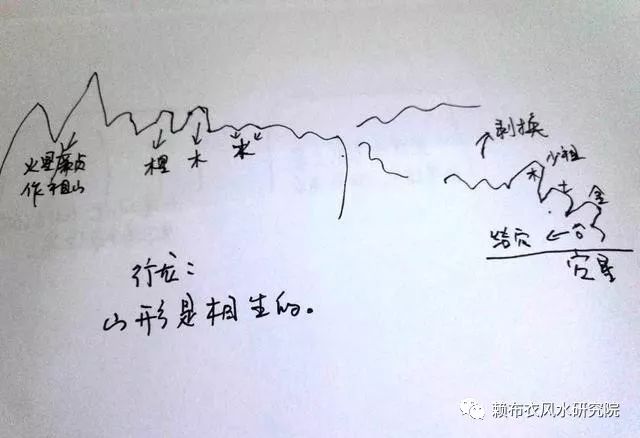 火星廉贞
作祖山
木星
木
水
剥换
少祖
木
土
金
结穴
穴星
行龙：
山形是相生的。
赖布衣风水研究院